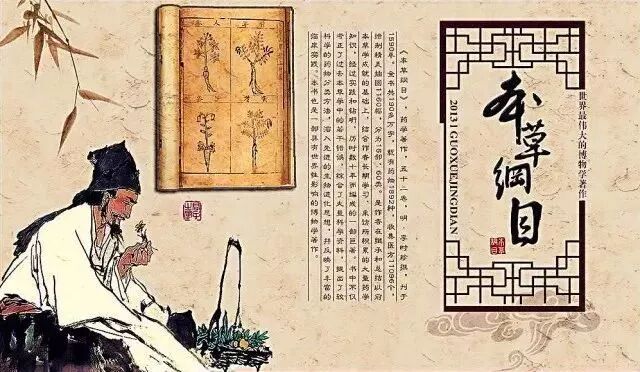 世界最伟大的博物学著作
本草綱目
2013 I GUOXUEJINGDIAN
《本草纲目》，药学著作，五十二卷，明 李时珍撰，刊于
1590年。全书共190多万字，载有药物1892种，收集医方11096个，
绘制精美插图1160幅，分为16部、60类。是作者在继承和总结以前
本草学成就的基础上，结合作者长期学习、采访所积累的大量药学
知识，经过实践和钻研，历时数十年而编成的一部巨著。书中不仅
考正了过去本草学中的若干错误，综合了大量科学资料，提出了较
科学的药物分类方法，溶入先进的生物进化思想，并反映了丰富的
临床实践。本书也是一部具有世界性影响的博物学著作。